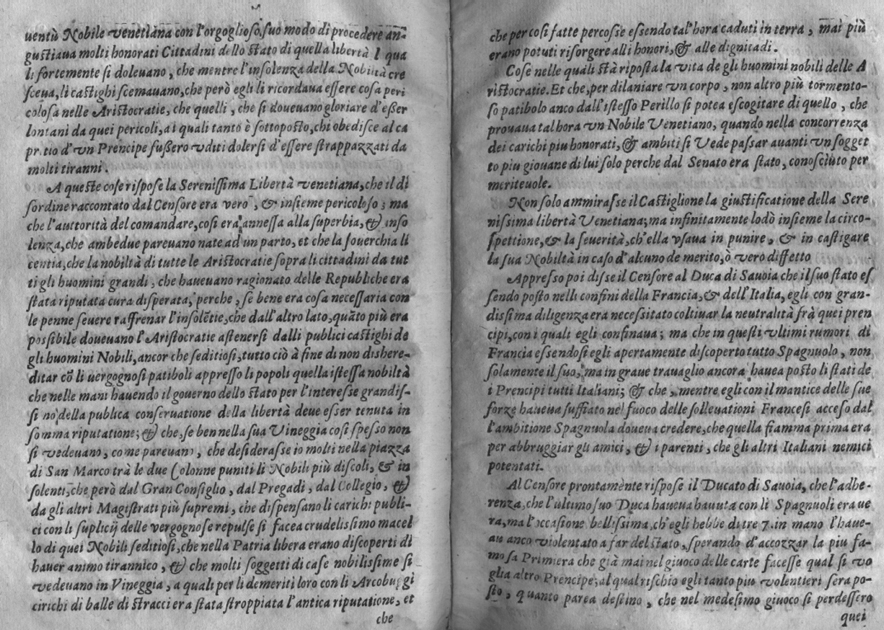 uentù Nobile Venetiana con l'orgoglioso suo modo di procedere an-
gustiaua molti honorati Cittadini dello stato di quella libertà I qua
li fortemente si doleuano, che mentre l'insolenza della Nobiltà cre
sceua, li castighi scemauano, che però egli li ricordaua essere cosa peri
colosa nelle Aristocratie, che quelli, che si doueuano gloriare d'esser
lontani da quei pericoli, a i quali tanto è sottoposto, chi obedisce al ca
priccio d'vn Prencipe sussero vditi dolersi d'essere strappazzati da
molti tiranni.
A queste cose rispose la Serenissima Libertà venetiana, che il di
sordine raccontato dal Censore era vero, & insieme pericoloso; ma
che l'auttorità del comandare, così era annessa alla superbia, & inso
lenza, che ambedue pareuano nate ad un parto, et che la souerchia li
centia, che la nobiltà di tutte le Aristocratie sopra li cittadini da tut
ti gli huomini grandi, che haueuano ragionato delle Republiche era
stata riputata cura disperata, perche, se bene era cosa necessaria con
le penne seuere raffrenar l'insolẽtie, che dall'altro lato, quãto più era
possibile doueuano l'Aristocratie astenersi dalli publici castighi de
gli huomini Nobili, ancor che seditiosi, tutto ciò à fine di non dishere-
ditar cõ li uergognosi patiboli appresso li popoli quella istessa nobiltà
che nelle mani hauendo il gouerno dello stato per l'interesse grandis-
si nò della publica conseruatione della libertà deue esser tenuta in
somma riputatione; & che, se ben nella sua Vineggia così spesso non
si vedeuano, come pareuano, che desiderasse in molti nella piazza
di San Marco trà le due Colonne puniti li Nobili più discoli, & in
solenti, che però dal Gran Consiglio, dal Pregadi, dal Collegio, &
da gli altri Magistrati più supremi, che dispensano li carichi publi-
ci con li suplicij delle vergognose repulse si facea crudelissimo macel
lo di quei Nobili seditiosi, che nella Patria libera erano discoperti di
hauer animo tirannico, & che molti soggetti di case nobilissime si
vedeuano in Vineggia, a quali per li demeriti loro con li Arcobuggi
cirichi di balle di stracci era stata stroppiata l'antica riputatione, et
che
che per così fatte percosse essendo tal'hora caduti in terra, mai più
erano potuti risorgere alli honori, & alle dignitadi.
Cose nelle quali stà riposta la vita de gli huomini nobili delle A
ristocratie. Et che, per dilaniare vn corpo, non altro più tormento-
so patibolo anco dall'istesso Perillo si potea escogitare di quello, che
prouaua tal hora vn Nobile Venetiano, quando nella concorrenza
dei carichi più honorati, & ambiti si Vede passar auanti vn sogget
to piu giouane di lui solo perche dal Senato era stato, conosciuto per
meriteuole.
Non solo ammirasse il Castiglione la giustificatione della Sere
nissima libertà Venetiana; ma infinitamente lodò insieme la circo-
spettione, & la seuerità, ch'ella vsaua in punire, & in castigare
la sua Nobiltà in caso d'alcuno de merito, ò vero diffetto
Appresso poi disse il Censore al Duca di Sauoia che il suo stato es
sendo posto nelli confini della Francia, & dell'Italia, egli con gran-
dissima diligenza era necessitato coltiuar la neutralità frà quei pren
cipi, con i quali egli confinaua; ma che in questi vltimi rumori di
Francia essendosi egli apertamente discoperto tutto Spagnuolo, non
solamente il suo, ma in graue trauaglio ancora hauea posto li stati de
i Prencipi tutti Italiani; & che, mentre egli con il mantice delle sue
forze haueua suffiato nel fuoco delle solleuationi Francesi acceso dal
l'ambitione Spagnuola doueua credere, che quella fiamma prima era
per abbruggiar gli amici, & i parenti, che gli altri Italiani nemici
potentati.
Al Censore prontamente rispose il Ducato di Sauoia, che l'adhe-
renza, che l'ultimo suo Duca haueua hauuta con li Spagnuoli era ue
ra, ma l'occasione bellissima, ch'egli hebbe di tre 7. in mano l'haue-
au anco violentato a far del stato, sperando d'accozzar la piu fa-
mosa Primiera che già mai nel giuoco delle carte facesse qual si vo
glia altro Prencipe; al qual rischio egli tanto piu volentieri sera po-
sto, quanto parea destino, che nel medesimo giuoco si perdessero
quei